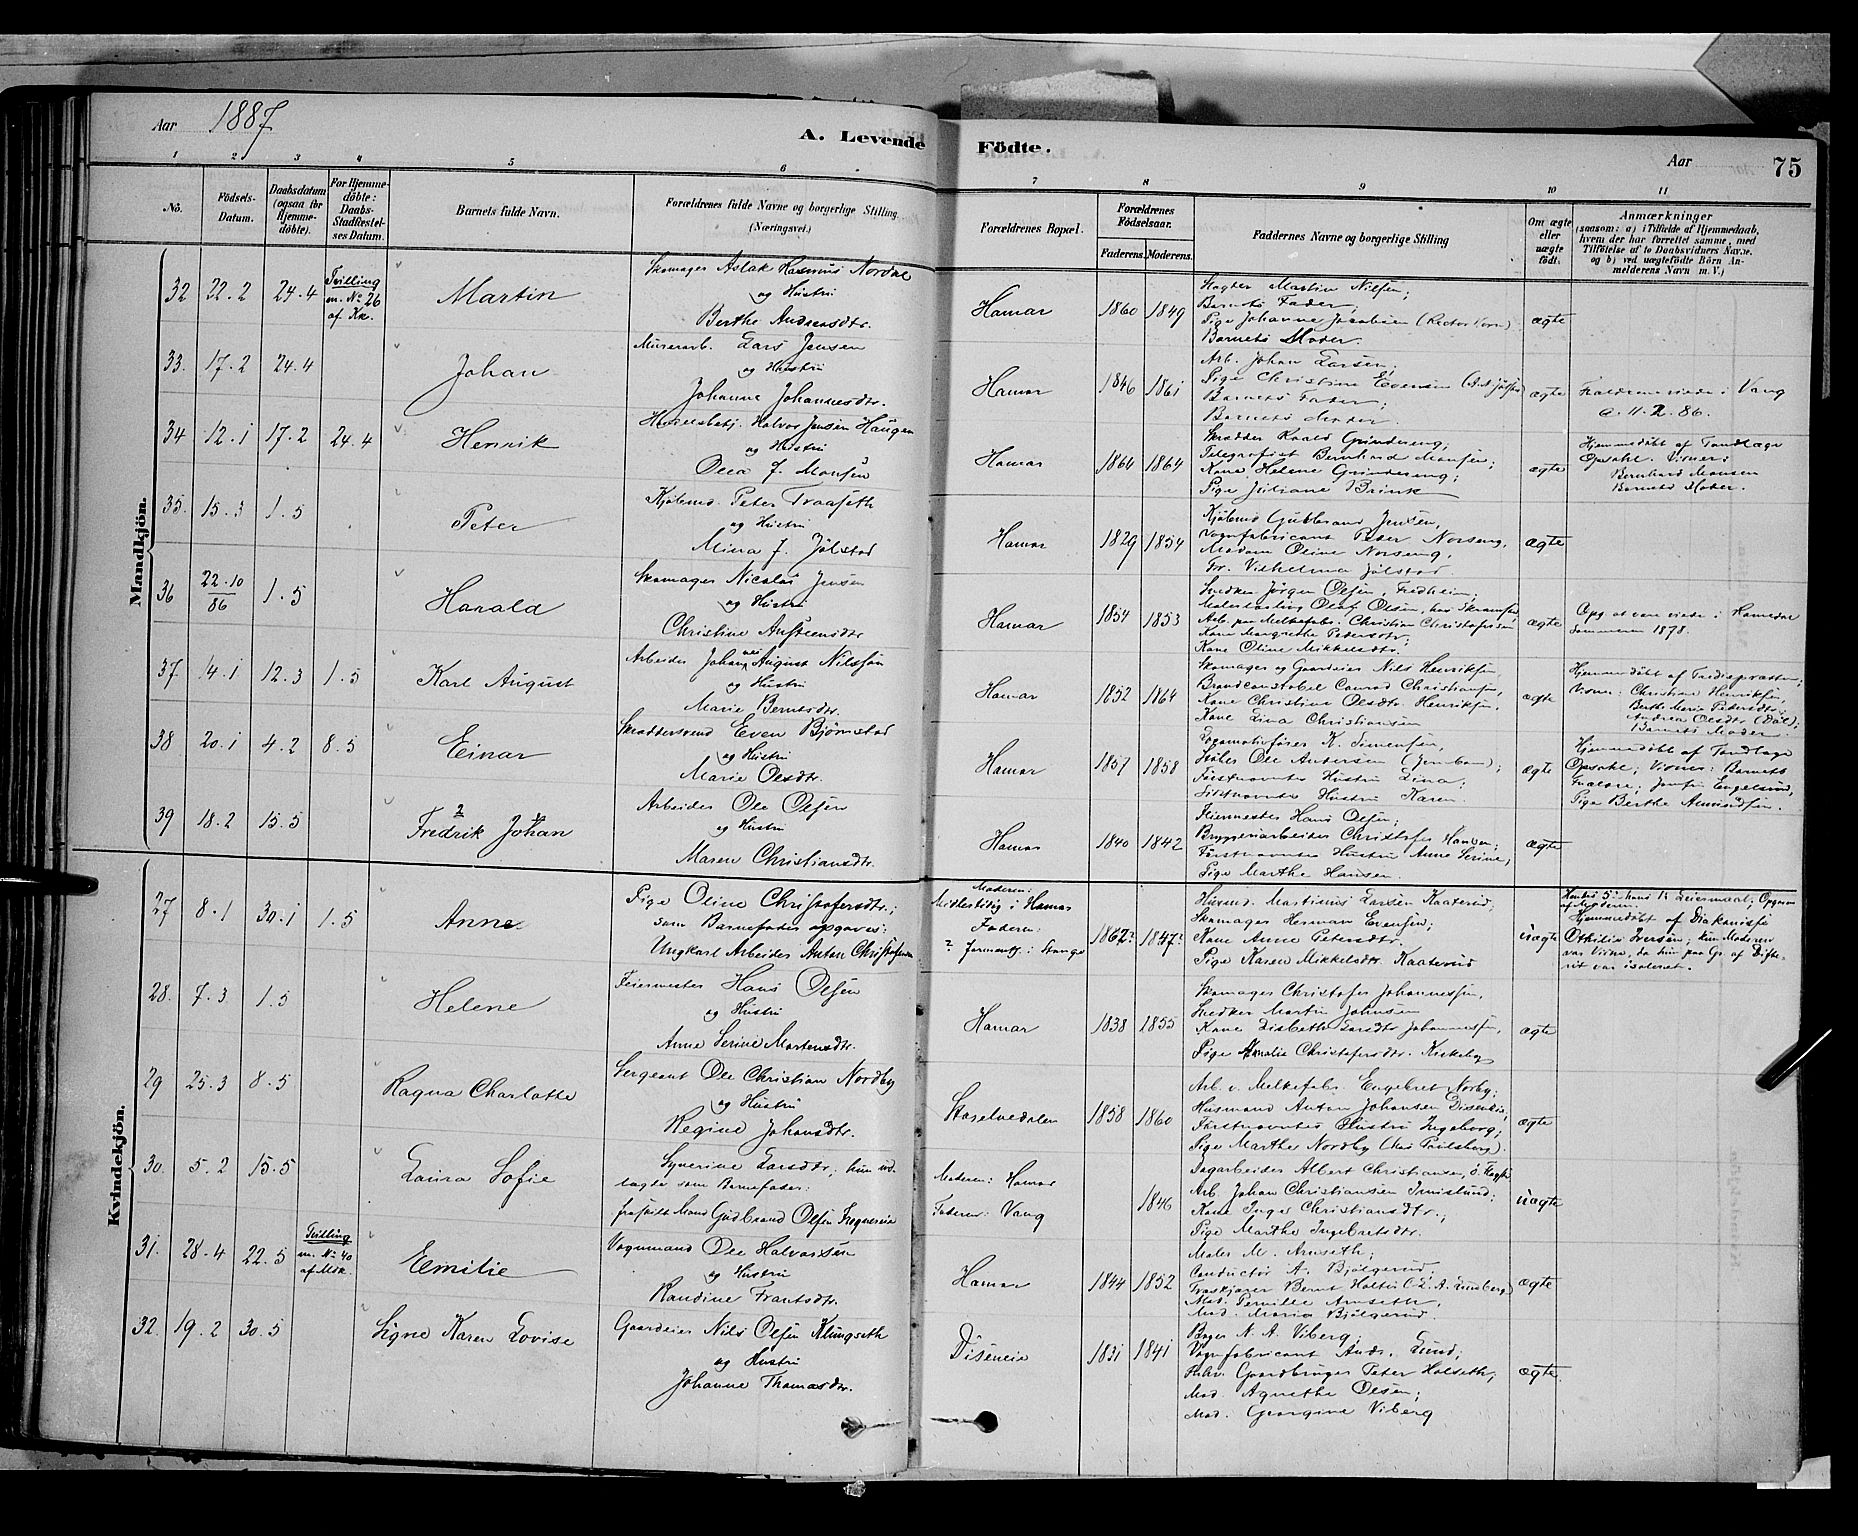 Aar 1887
A. Levende Födte.
Aar
75
1 2 3 4 5 6 7 8 9 10 11
No.
Födsels-
Datum.
Daabsdatum
(ogsaa for
Hjemme-
döbte).
For Hjemme-
döbte:
Daabs-
Stadfæstel-
ses Datum.
Barnets fulde Navn.
Forældrenes fulde Navne og borgerlige Stilling
(Næringsvei.)
Forældrenes Bopæl.
Forældrenes
Födselsaar.
Faderens. Moderens.
Faddernes Navne og borgerlige Stilling
Om ægte
eller
uægte
født.
Anmærkninger
(saasom: a) i Tilfælde af Hjemmedaab,
hvem der har forrettet samme, med
Tilföielse af to Daabsvidners Navne,
og b) ved uægtefödte Börn An-
melderens Navn m. V.)
Mandkjön.
32 22.2 24.4 Tvilling
m. No 26
af Kk.
Martin
Skomager Aslak Nordal
og Hustru
Berthe Andreasdtr.
Hamar 1860 1849
Martin Nilsen;
Barnets Fader;
Pige Johanne Jacobsen
Barnets Moder.
ægte
33. 17.2 24.4
Johan
Murerarb. Lars Jensen
og Hustru
Johanne Johannesdtr.
Hamar 1846 1861
Arb. Johan Larsen;
Pige Christine Evensen
Barnets Fader;
Barnets Moder.
ægte
Forældrene viede i Vang
11.2.86.
34 12.1 17.2 24.4
Henrik
Halvor Jensen Haugen
og Hustru
Olea J. Monsen
Hamar 1864 1864
Skrædder Roald Grindereng;
Telegrafist Bernhard Monsen;
Kone Helene Grindereng;
Pige Juliane Brink
ægte
Hjemmedøbt af Tandlæge
Opsahl. Vidner:
Bernhard Monsen
Barnets Moder.
35. 15.3 1.5
Peter
Kjøbmd. Peter Traaseth
og Hustru
Mina J. Jølstad
Hamar 1829 1854
Kjøbmd Gulbrand Jensen,
Vognfabricant Peder Norseng,
Madam Oline Norseng,
Fr. Vilhelmina Jølstad
ægte
36 22.10
86
1.5
Harald
Skomager Nicolai Jensen
og Hustru
Christine Austensdtr
Hamar 1854 1853
Snedker Jørgen Olsen, Fredheim;
Malerlærling Olaf Olsen,
Arb. paa Melkefabr. Christian Christofersen
Kone Margrethe Pedersdtr;
Kone Oline Mikkelsdtr.
ægte
Opg. at være viede i
Sommeren 1878.
37 4.1 12.3 1.5
Karl August
Arbeider Johan August Nilsson
og Hustru
Marie Berntsdtr.
Hamar 1852 1864
Skomager og Gaardeier Nils Henriksen,
Brandconstabel Conrad Christiansen,
Kone Christine Olsdtr. Henriksen,
Kone Lina Christiansen
ægte
Hjemmedøbt af
Vidner: Christian Henriksen,
Berthe Marie Pedersdtr.
Andrea Olsdtr
Barnets Moder.
38 20.1 4.2 8.5
Einar
Skræddersvend Even Bjørnstad
og Hustru
Marie Olsdtr.
Hamar 1857 1858
Locomotivfører K. Simensen,
Ole Andersen
Førstnævntes Hustru Lina;
Sidstnævntes Hustru Karen
ægte
Hjemmedøbt af Tandlæge
Opsahl; Vidner: Barnets
Forældre; Engelsrud,
Pige Berthe Amundsen.
39 18.2 15.5
2 1
Fredrik Johan
Arbeider Ole Olsen
og Hustru
Maren Christiansdtr.
Hamar 1840 1842
Feiermester Hans Olsen;
Bryggeriarbeider Christofer Hansen;
Førstnævntes Hustru Anne Serine;
Pige Marthe Hansen.
ægte
Kvindekjön.
27 8.1 30.1 1.5
Anne
Pige Oline Christofersdtr.;
som Barnefader opgaves:
Ungkarl Arbeider Anton Christofersen
Moderen:
Midlertidig i Hamar
Faderen:
? i Stange
1862? 1847?
Husmd. Martinius Larsen Kaaterud;
Skomager Herman Evensen;
Kone Anne Petersdtr.
Pige Karen Mikkelsdtr. Kaaterud
uægte
Hendes 5te hans 1ste Leiermaal, Opgiven
af Moderen.
Hjemmedøbt af Diakonisse
Othilie Iversen; kun Moderen
var Vidne, da hun paa Gr. af Difte-
rit var isoleret.
28. 7.3 1.5
Helene
Feiermester Hans Olsen
og Hustru
Anne Serine Mortensdtr.
Hamar 1838 1855
Skomager Christofer Johannesen,
Snedker Martin Johnsen
Kone Lisbeth Larsdtr Johannesen,
Pige Amalie Christofersdtr. Kirkeby
ægte
29 25.3 8.5
Ragna Charlotte
Sergeant Ole Christian Nordby
og Hustru
Regine Johansdtr.
1858 1860
Arb. v. Melkefabr. Engebret Norby;
Husmand Anton Johansen Disenei,
Førstnævntes Hustru Ingeborg,
Pige Marthe Nordby
ægte
30. 5.2 15.5
Laura Sofie
Synerine Larsdtr; hun ud-
lagte som Barnefader:
fraskilt Mand Gudbrand Olsen
Moderen: Hamar
Faderen: Vang
1846
Dagarbeider Albert Christiansen,
Arb. Johan Christiansen Imislund;
Kone Inger Christiansdtr.;
Pige Marthe Ingebretsdtr.
uægte
31. 28.4 22.5 Tvilling
m. No 40
af Mdk.
Emilie
Vognmand Ole Halvorsen
og Hustru
Randine Frantsdtr.
Hamar 1844 1852
Maler M. Amseth;
Conductør A. Bjølgerud;
Bernt Holter
Mad. Pernille Amseth,
Mad. Maria Bjølgerud.
ægte
32. 19.2 30.5
Signe Karen Lovise
Gaardeier Nils Olsen Klungseth
og Hustru
Johanne Thomasdtr.
Diseneie 1831 1841
Bager N. A. Viberg;
Vognfabricant Ands. Lund;
Gaardbruger Peter Holseth,
Mad. Agnethe Olsen;
Mad. Georgine Viberg
ægte.